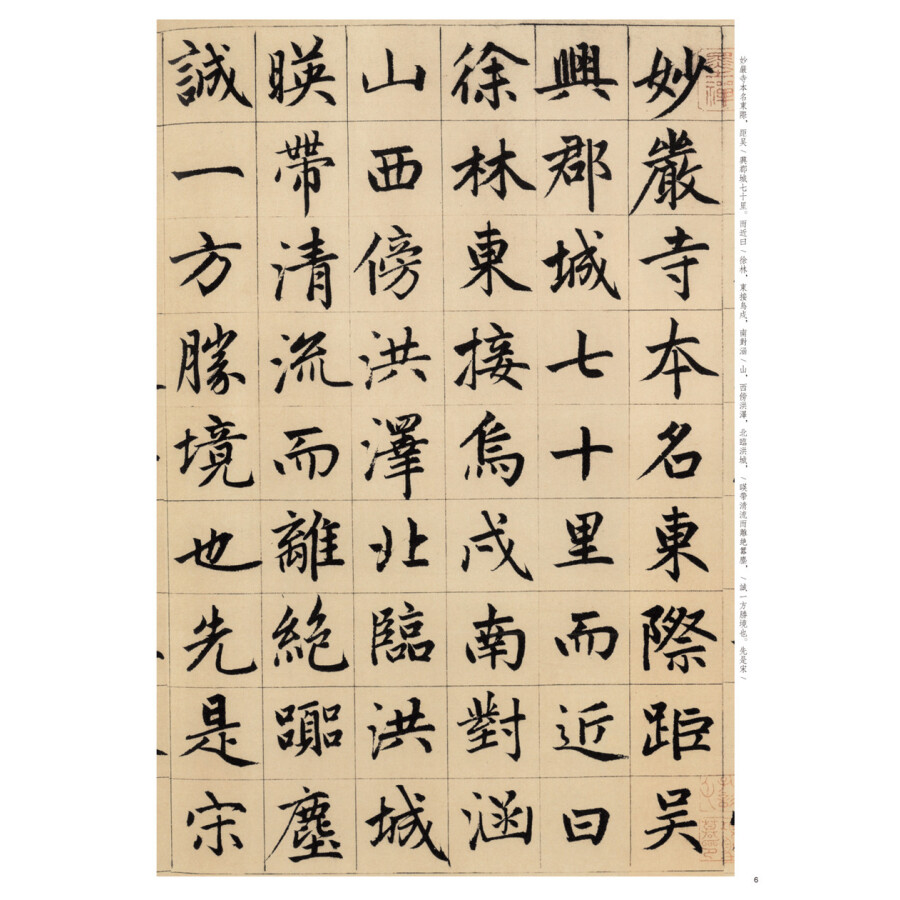 妙嚴寺本名東際距吳
興郡城七十里而近曰
徐林東接烏戍南對涵
山西傍洪澤北臨洪城
暎帶清流而離絶嚻塵
誠一方勝境也先是宋
妙嚴寺本名東際，距吴/興郡城七十里。而近曰/徐林，東接烏戍，南對涵/山，西傍洪澤，北臨洪城，/暎帶清流而離絶嚻塵，/誠一方勝境也。先是宋/
6